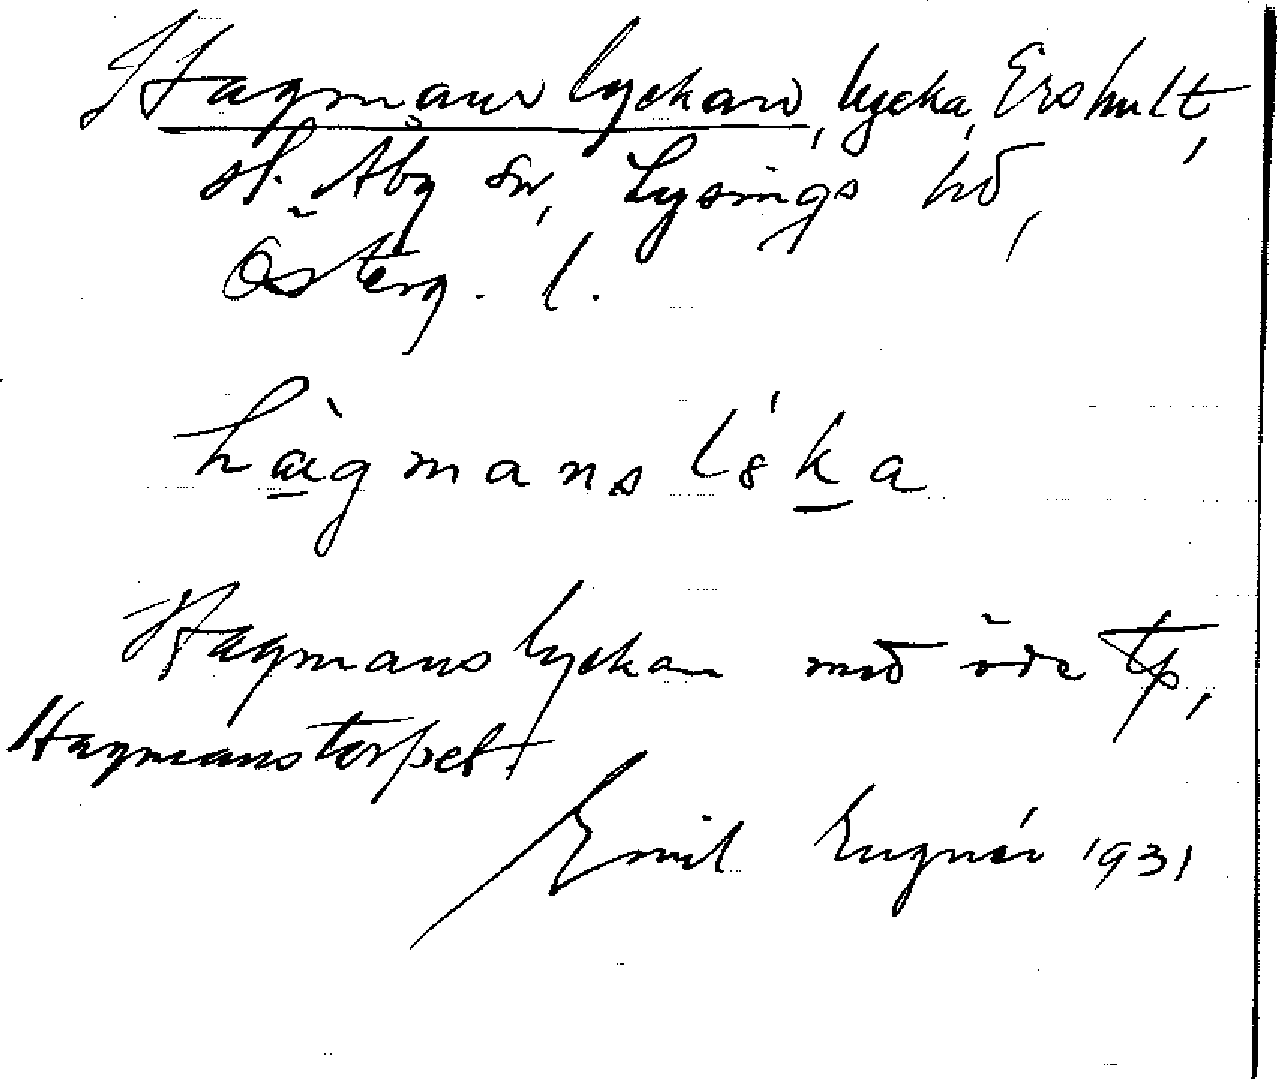 Hagmanslyckan, lycka, Ershult,
st. Åby sn, Lysings hd,
Österg. l.
hàgmanslska
Hagmanslyckan med öde tp,
Hagmanstorpet.
Emil Lugnér 1931